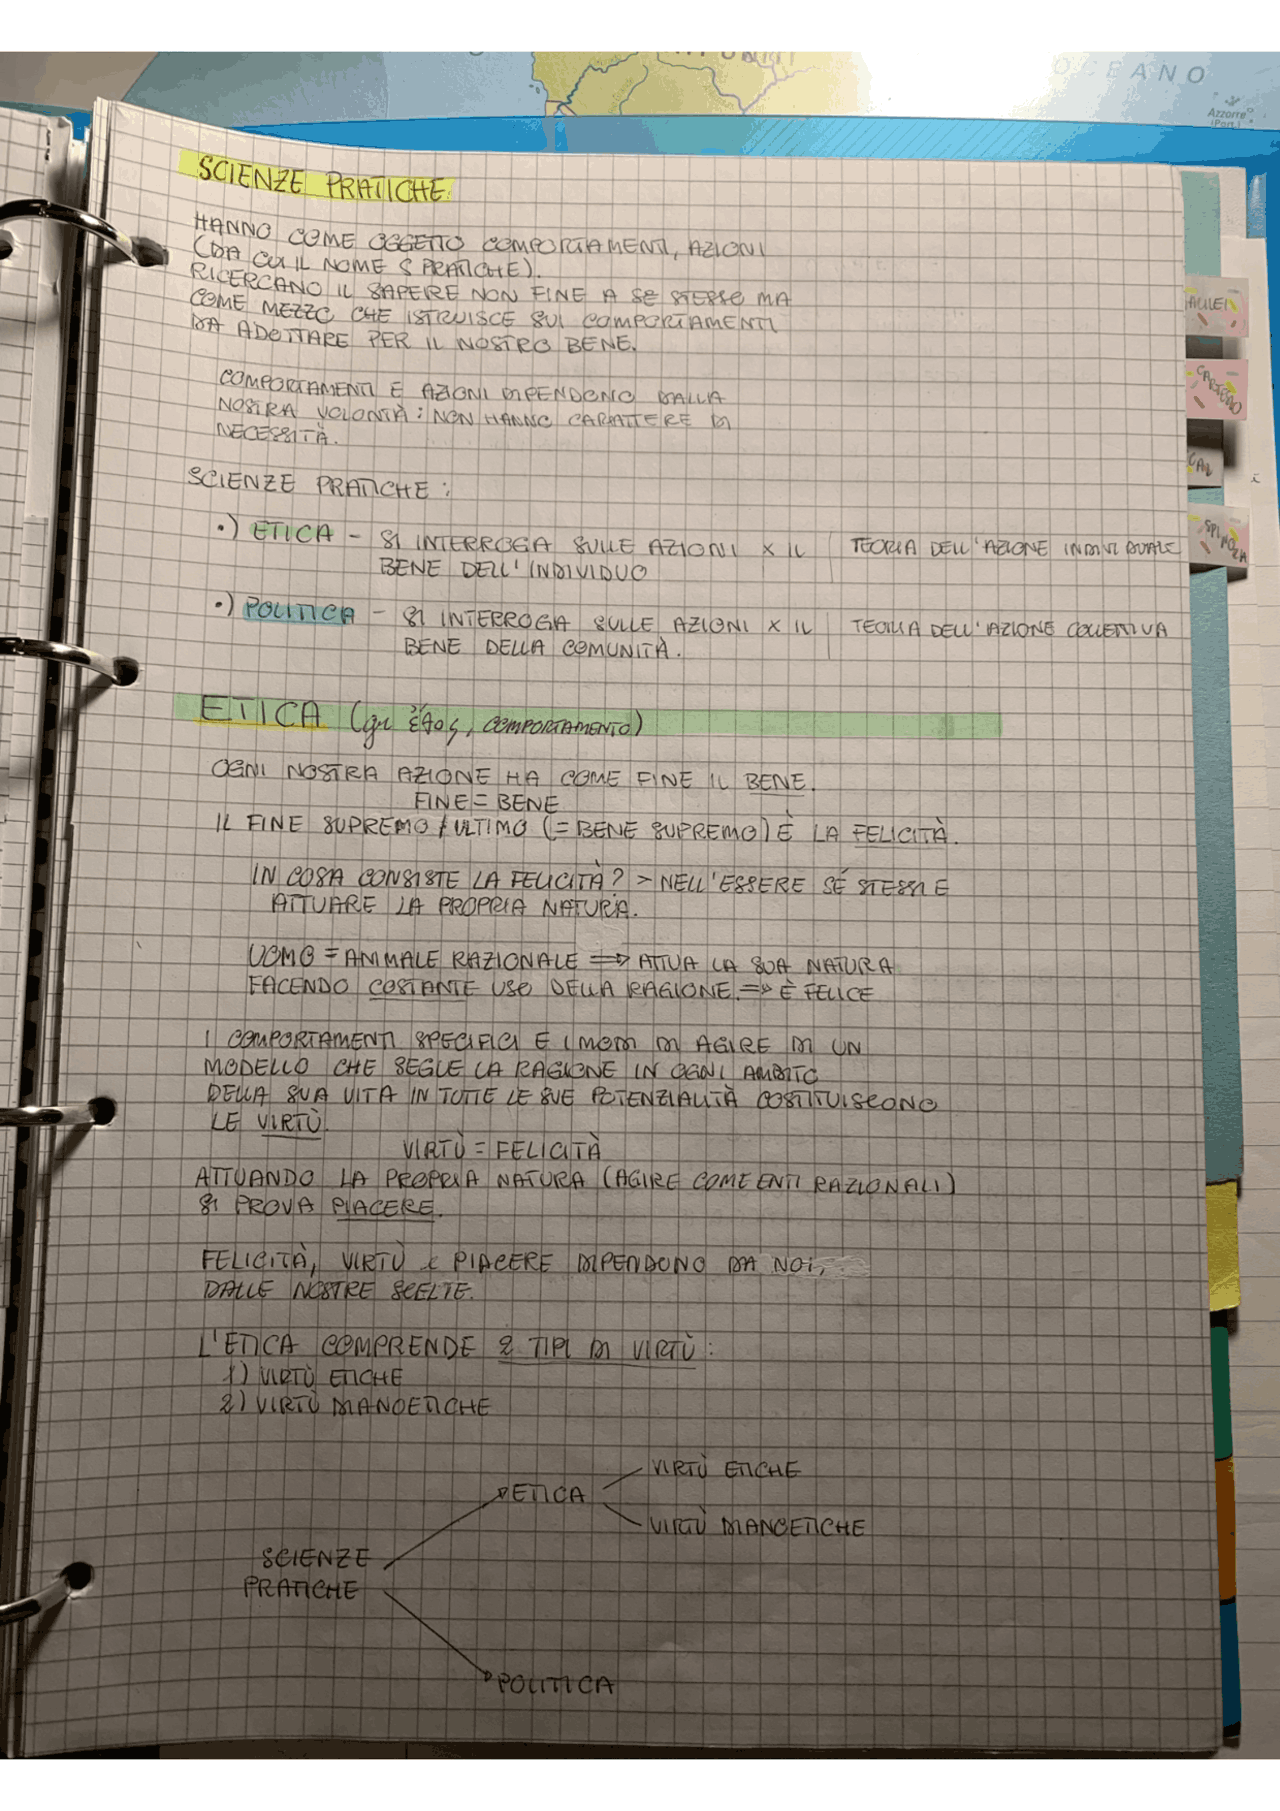 OCEANO
Azzorre
(Port.)
SCIENZE PRATICHE
HANNO COME OGGETTO COMPORTAMENTI, AZIONI
(DA CUI IL NOME S PRATICHE).
RICERCANO IL SAPERE NON FINE A SE STESSO MA
COME MEZZO CHE ISTRUISCE SUI COMPORTAMENTI
DA ADOTTARE PER IL NOSTRO BENE.
COMPORTAMENTI E AZIONI DIPENDONO DALLA
NOSTRA VOLONTÀ: NON HANNO CARATTERE DI
NECESSITÀ.
SCIENZE PRATICHE:
•) ETICA - SI INTERROGA SULLE AZIONI X IL | TEORIA DELL'AZIONE INDIVIDUALE
BENE DELL'INDIVIDUO
•) POLITICA - SI INTERROGA SULLE AZIONI X IL | TEORIA DELL'AZIONE COLLETTIVA
BENE DELLA COMUNITÀ.
ETICA (gr ἔθος, COMPORTAMENTO)
OGNI NOSTRA AZIONE HA COME FINE IL BENE.
FINE = BENE
IL FINE SUPREMO / ULTIMO (= BENE SUPREMO) È LA FELICITÀ.
IN COSA CONSISTE LA FELICITÀ? > NELL'ESSERE SÉ STESSI E
ATTUARE LA PROPRIA NATURA.
UOMO = ANIMALE RAZIONALE => ATTUA LA SUA NATURA
FACENDO COSTANTE USO DELLA RAGIONE. => È FELICE
I COMPORTAMENTI SPECIFICI E I MODI DI AGIRE DI UN
MODELLO CHE SEGUE LA RAGIONE IN OGNI AMBITO
DELLA SUA VITA IN TUTTE LE SUE POTENZIALITÀ COSTITUISCONO
LE VIRTÙ.
VIRTÙ = FELICITÀ
ATTUANDO LA PROPRIA NATURA (AGIRE COME ENTI RAZIONALI)
SI PROVA PIACERE.
FELICITÀ, VIRTÙ e PIACERE DIPENDONO DA NOI,
DALLE NOSTRE SCELTE.
L'ETICA COMPRENDE 2 TIPI DI VIRTÙ:
1) VIRTÙ ETICHE
2) VIRTÙ DIANOETICHE
VIRTÙ ETICHE
ETICA
VIRTÙ DIANOETICHE
SCIENZE
PRATICHE
POLITICA
GALILEI
CARTESIO
SPINOZA